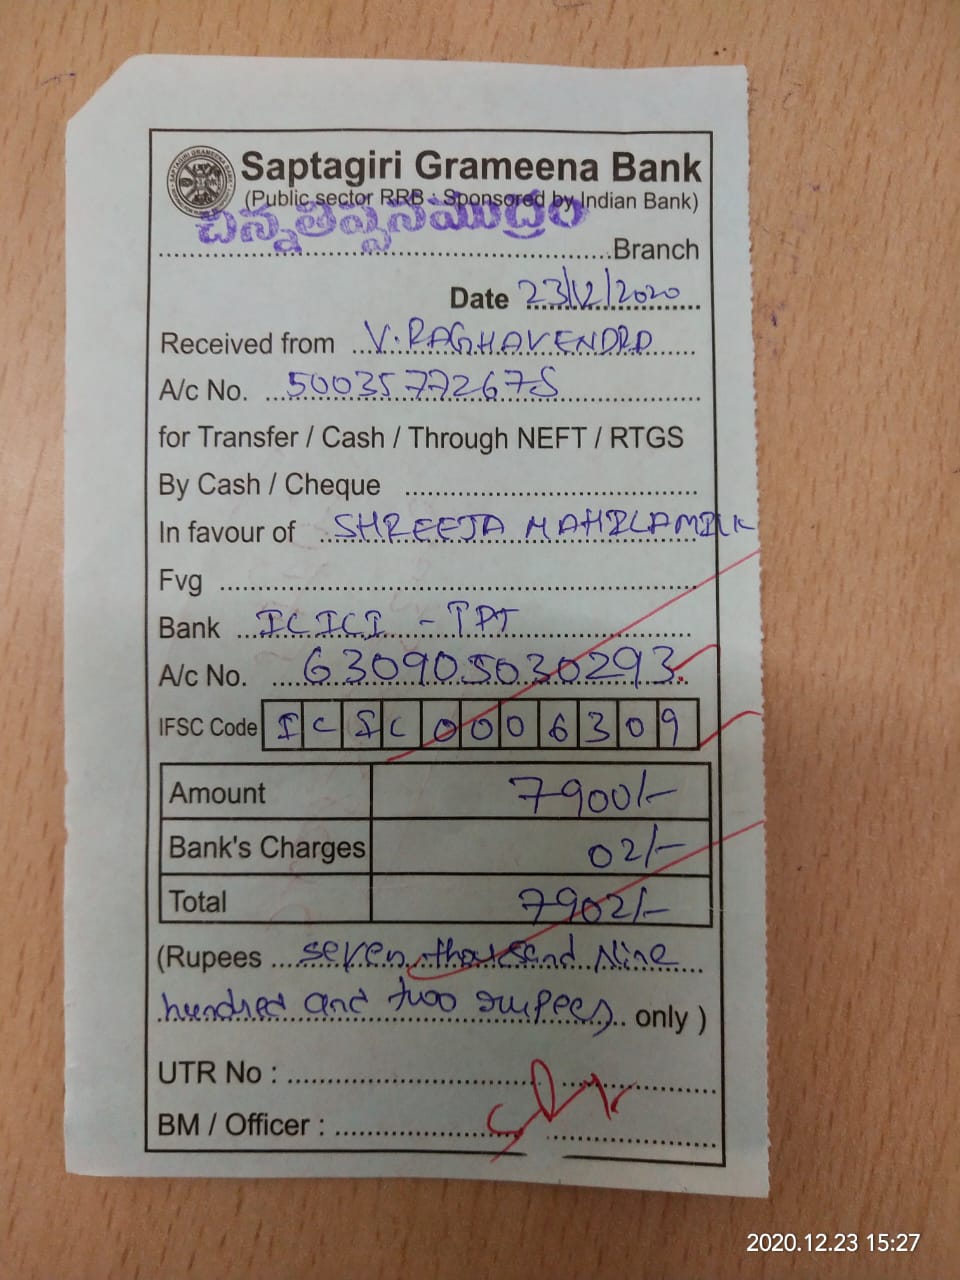 Saptagiri Grameena Bank
(Public sector RRB : Sponsored by Indian Bank)
చిన్నతిప్పసముద్రం
Branch
Date 23/12/2020
Received from V. RAGHAVENDRA
A/c No. 50035772675
for Transfer / Cash / Through NEFT / RTGS
By Cash / Cheque
In favour of SHREEJA MAHILAMILK
Fvg
Bank ICICI - TPT
A/c No. 630905030293
IFSC Code ICIC0006309
Amount 7900/-
Bank's Charges 02/-
Total 7902/-
(Rupees seven thousand Nine
hundred and two rupees only )
UTR No :
BM / Officer :
2020.12.23 15:27